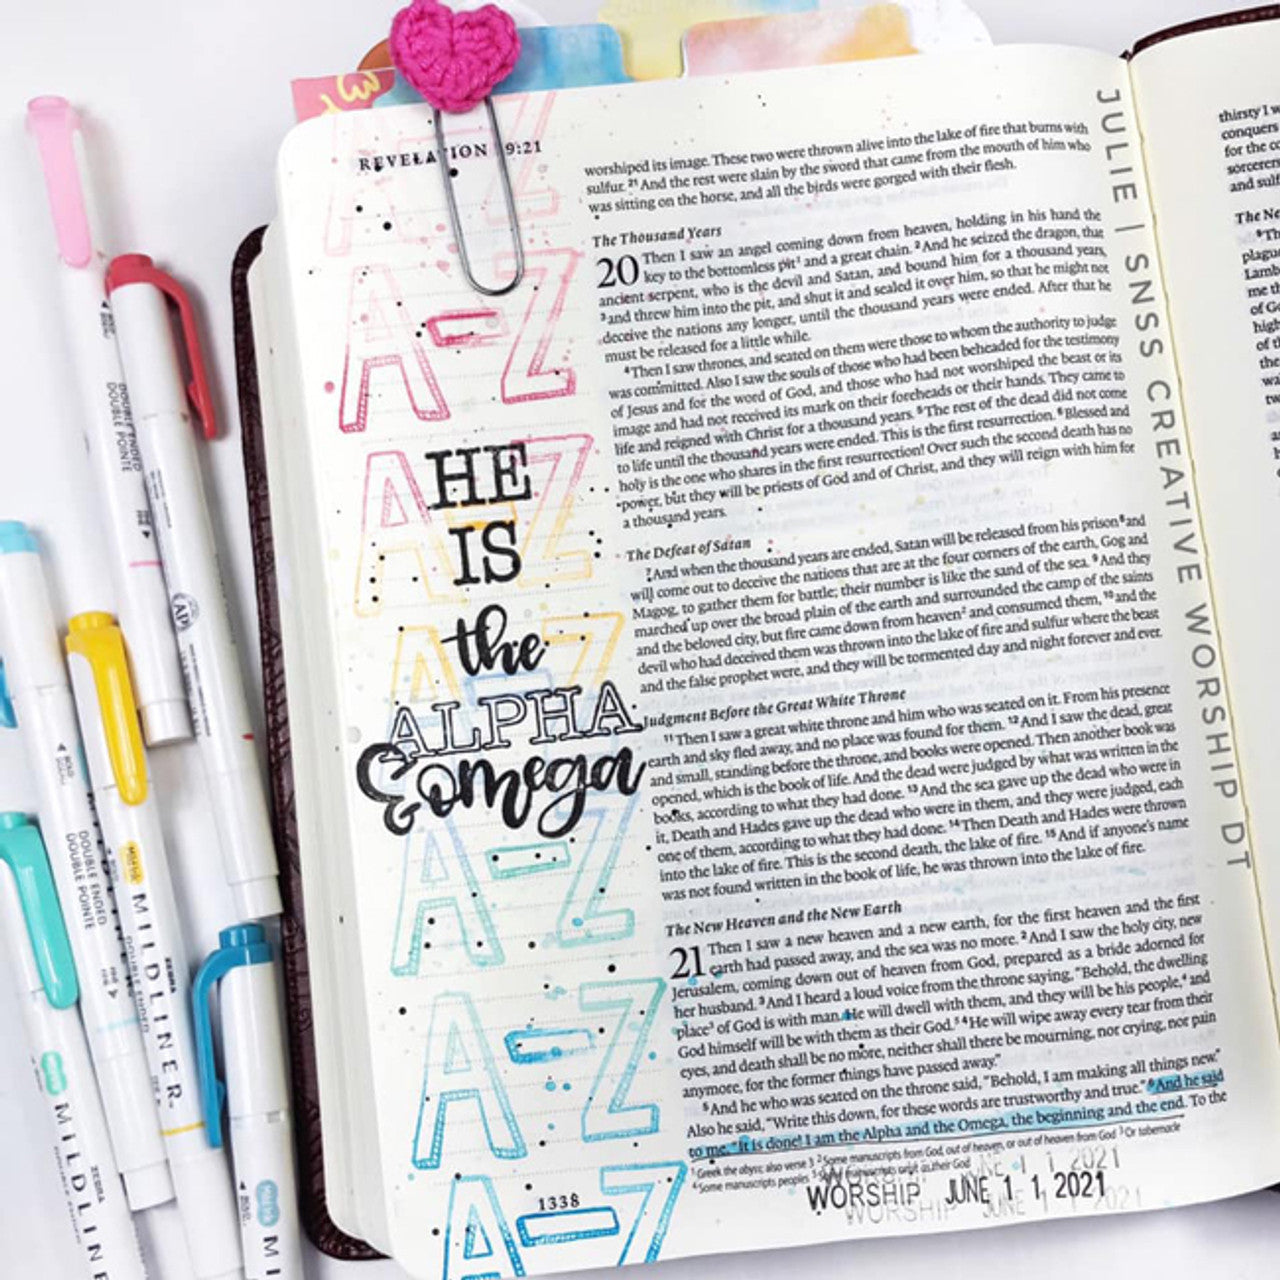 REVELATION 19:21
A-Z
A-Z
HE
IS
the
ALPHA
& omega
A-Z
A-Z
A-Z
A-Z
A-Z
1338
worshiped its image. These two were thrown alive into the lake of fire that burns with
sulfur. 21 And the rest were slain by the sword that came from the mouth of him who
was sitting on the horse, and all the birds were gorged with their flesh.
The Thousand Years
20 Then I saw an angel coming down from heaven, holding in his hand the
key to the bottomless pit1 and a great chain. 2 And he seized the dragon, that
ancient serpent, who is the devil and Satan, and bound him for a thousand years,
3 and threw him into the pit, and shut it and sealed it over him, so that he might not
deceive the nations any longer, until the thousand years were ended. After that he
must be released for a little while.
4 Then I saw thrones, and seated on them were those to whom the authority to judge
was committed. Also I saw the souls of those who had been beheaded for the testimony
of Jesus and for the word of God, and those who had not worshiped the beast or its
image and had not received its mark on their foreheads or their hands. They came to
life and reigned with Christ for a thousand years. 5 The rest of the dead did not come
to life until the thousand years were ended. This is the first resurrection. 6 Blessed and
holy is the one who shares in the first resurrection! Over such the second death has no
power, but they will be priests of God and of Christ, and they will reign with him for
a thousand years.
The Defeat of Satan
7 And when the thousand years are ended, Satan will be released from his prison 8 and
will come out to deceive the nations that are at the four corners of the earth, Gog and
Magog, to gather them for battle; their number is like the sand of the sea. 9 And they
marched up over the broad plain of the earth and surrounded the camp of the saints
and the beloved city, but fire came down from heaven2 and consumed them, 10 and the
devil who had deceived them was thrown into the lake of fire and sulfur where the beast
and the false prophet were, and they will be tormented day and night forever and ever.
Judgment Before the Great White Throne
11 Then I saw a great white throne and him who was seated on it. From his presence
earth and sky fled away, and no place was found for them. 12 And I saw the dead, great
and small, standing before the throne, and books were opened. Then another book was
opened, which is the book of life. And the dead were judged by what was written in the
books, according to what they had done. 13 And the sea gave up the dead who were in
it, Death and Hades gave up the dead who were in them, and they were judged, each
one of them, according to what they had done. 14 Then Death and Hades were thrown
into the lake of fire. This is the second death, the lake of fire. 15 And if anyone's name
was not found written in the book of life, he was thrown into the lake of fire.
The New Heaven and the New Earth
21 Then I saw a new heaven and a new earth, for the first heaven and the first
earth had passed away, and the sea was no more. 2 And I saw the holy city, new
Jerusalem, coming down out of heaven from God, prepared as a bride adorned for
her husband. 3 And I heard a loud voice from the throne saying, "Behold, the dwelling
place3 of God is with man. He will dwell with them, and they will be his people,4 and
God himself will be with them as their God.5 4 He will wipe away every tear from their
eyes, and death shall be no more, neither shall there be mourning, nor crying, nor pain
anymore, for the former things have passed away."
5 And he who was seated on the throne said, "Behold, I am making all things new."
Also he said, "Write this down, for these words are trustworthy and true." 6 And he said
to me, "It is done! I am the Alpha and the Omega, the beginning and the end. To the
1 Greek the abyss; also verse 3 2 Some manuscripts from God, out of heaven, or out of heaven from God 3 Or tabernacle
4 Some manuscripts peoples 5 Some manuscripts omit as their God
WORSHIP JUNE 1 1, 2021
JULIE | SNSS CREATIVE WORSHIP DT
thirsty I w
conquers
for the co
sorcerers
and sulf
The Ne
plague
Lamb
me th
of Go
high
of th
the
wa
tw
DOUBLE ENDED
DOUBLE POINTE
DOUBLE ENDED
DOUBLE POINTE
MILDLINER
DOUBLE ENDED
ZEBRA
MILDLINE
ZEBRA
MI